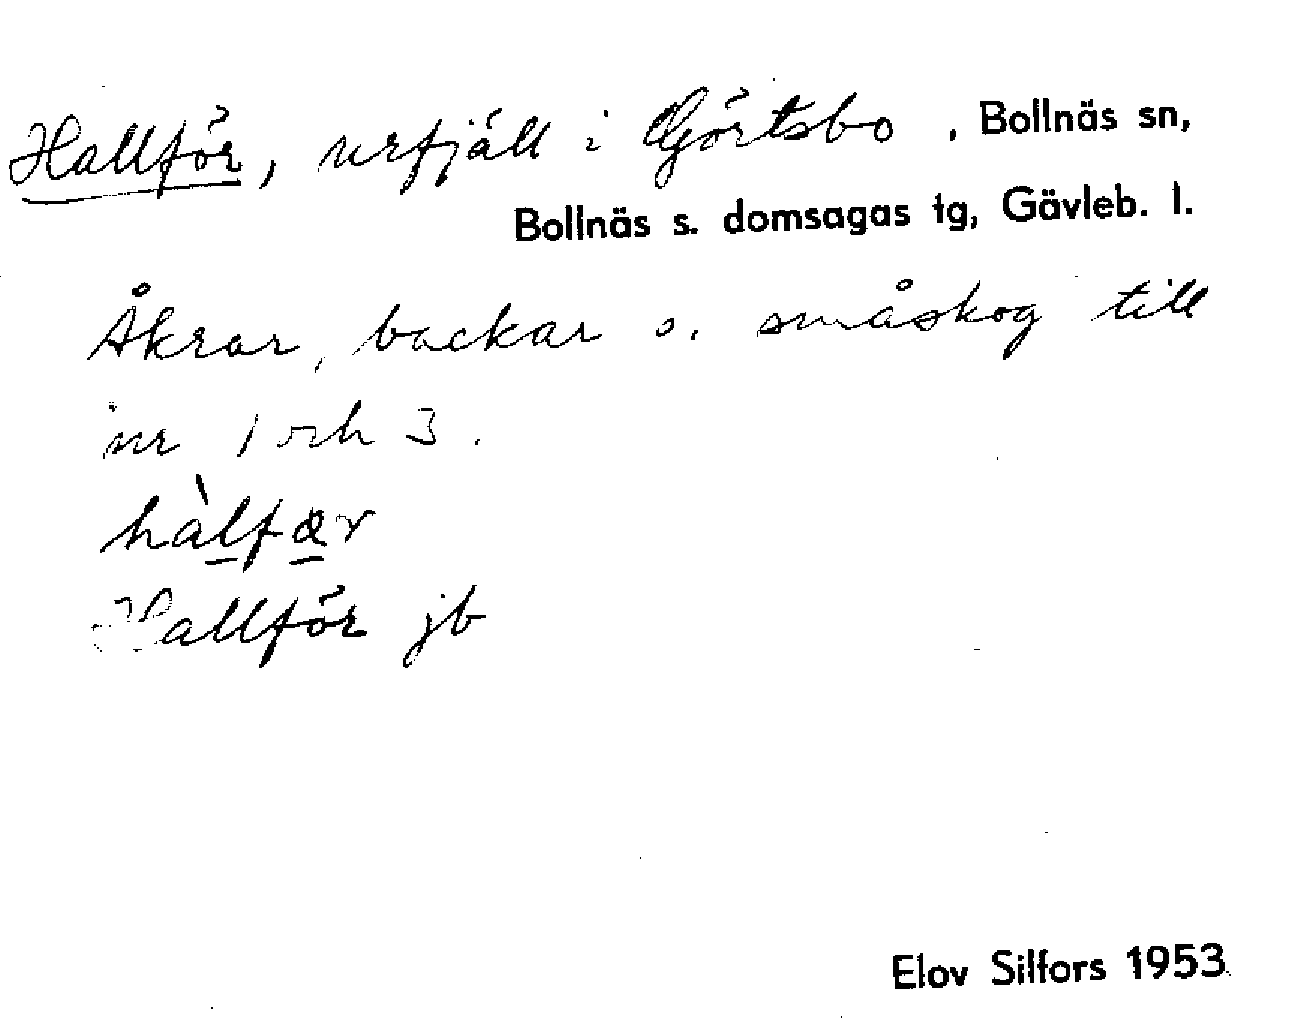 Hallför, urfjäll i Gjörtsbo, Bollnäs sn,
Bollnäs s. domsagas tg, Gävleb. l.
Åkrar, backar o. småskog till
nr 1 och 3.
hàlfær
Hallför jb
Elov Silfors 1953